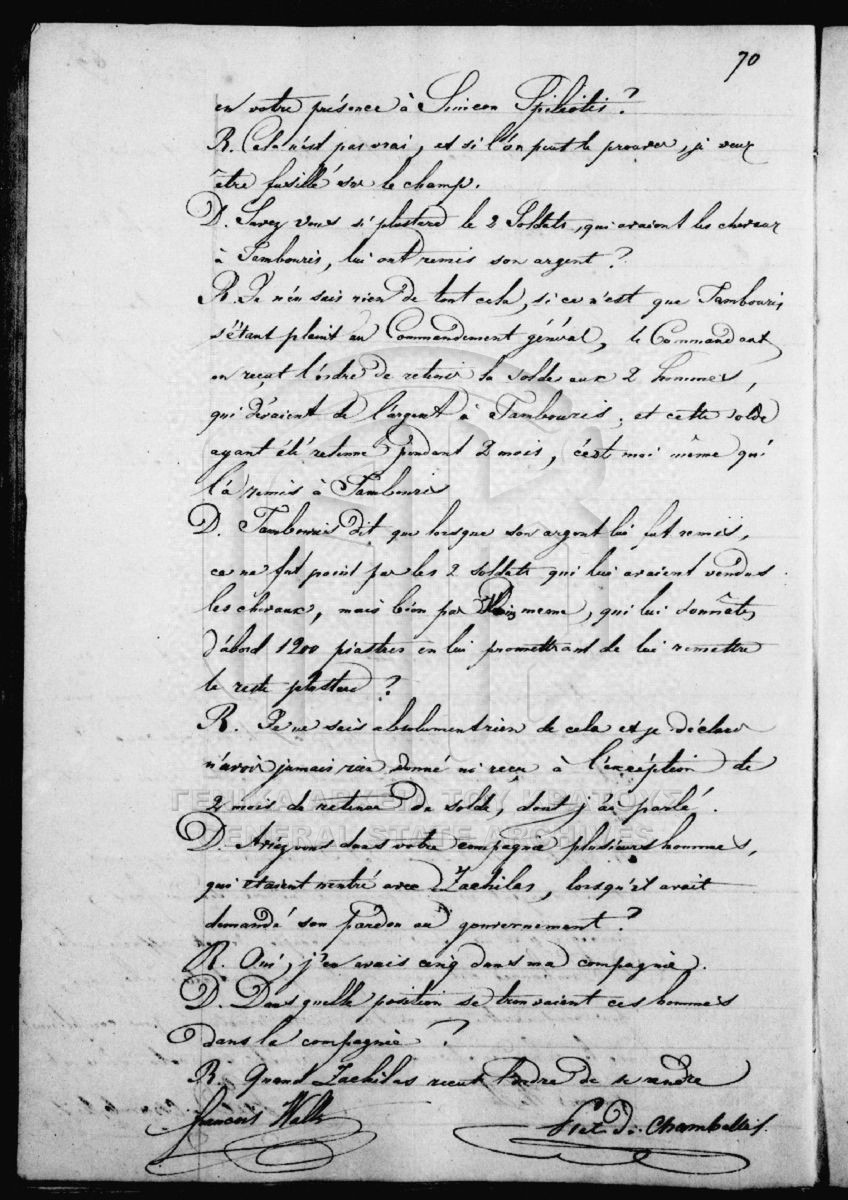 70
en votre présence à Simeon Spiliotis?
R. Cela n'est pas vrai, et si l'on peut le prouver, je veux
être fusillé sur le champ.
D. Savez vous si plustard le 2 Soldats, qui avaient les chevaux
à Tambouris, lui ont remis son argent?
R. Je n'en sais rien de tout cela, si ce n'est que Tambouris
s'étant plaint au Commandement général, le Commandant
en reçut l'ordre de retenir la solde aux 2 hommes,
qui devaient de l'argent à Tambouris, et cette solde
ayant été retenue pendant 2 mois, c'est moi même qui
l'a remis à Tambouris
D. Tambouris dit que lorsque son argent lui fut remis,
ce ne fut point par les 2 soldats qui lui avaient vendus
les chevaux, mais bien par même, qui lui donnât
d'abord 1200 piastres en lui promettrant de lui remettre
le reste plustard?
R. Je ne sais absolument rien de cela et je déclare
n'avoir jamais rien donné ni reçu à l'exception de
2 mois de retenue de solde, dont j'ai parlé.
ΓΕΝΙΚΑ ΑΡΧΕΙΑ ΤΟΥ ΚΡΑΤΟΥΣ
GENERAL STATE ARCHIVES
D. Aviez vous dans votre compagnie plusieurs hommes,
qui étaient rentré avec Zachilas, lorsqu'il avait
demandé son pardon au gouvernement?
R. Oui, j'en avais cinq dans ma compagnie.
D. Dans quelle position se trouvaient ces hommes
dans la compagnie?
R. Quand Zachilas reçut l'ordre de se rendre
François Chambellis